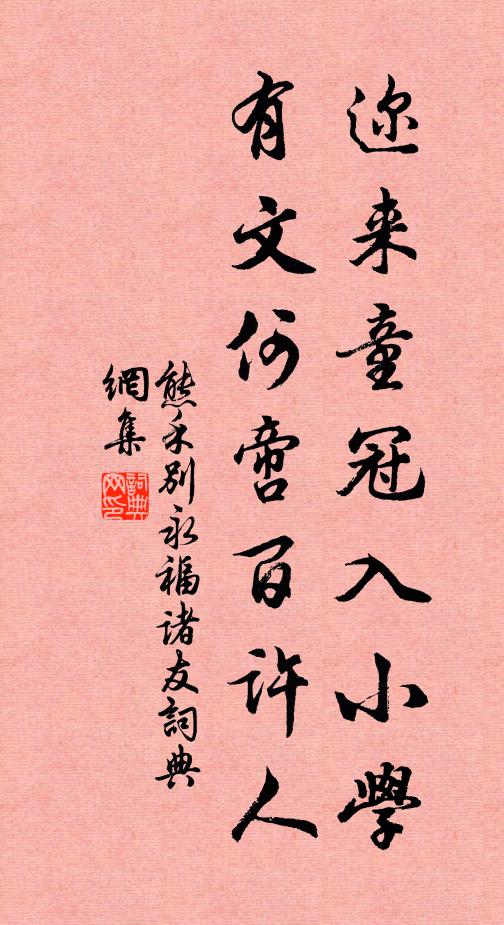 迩来童冠入小學
有文何啻百许人
熊禾别永福诸友詞典
網集
詞典
网印